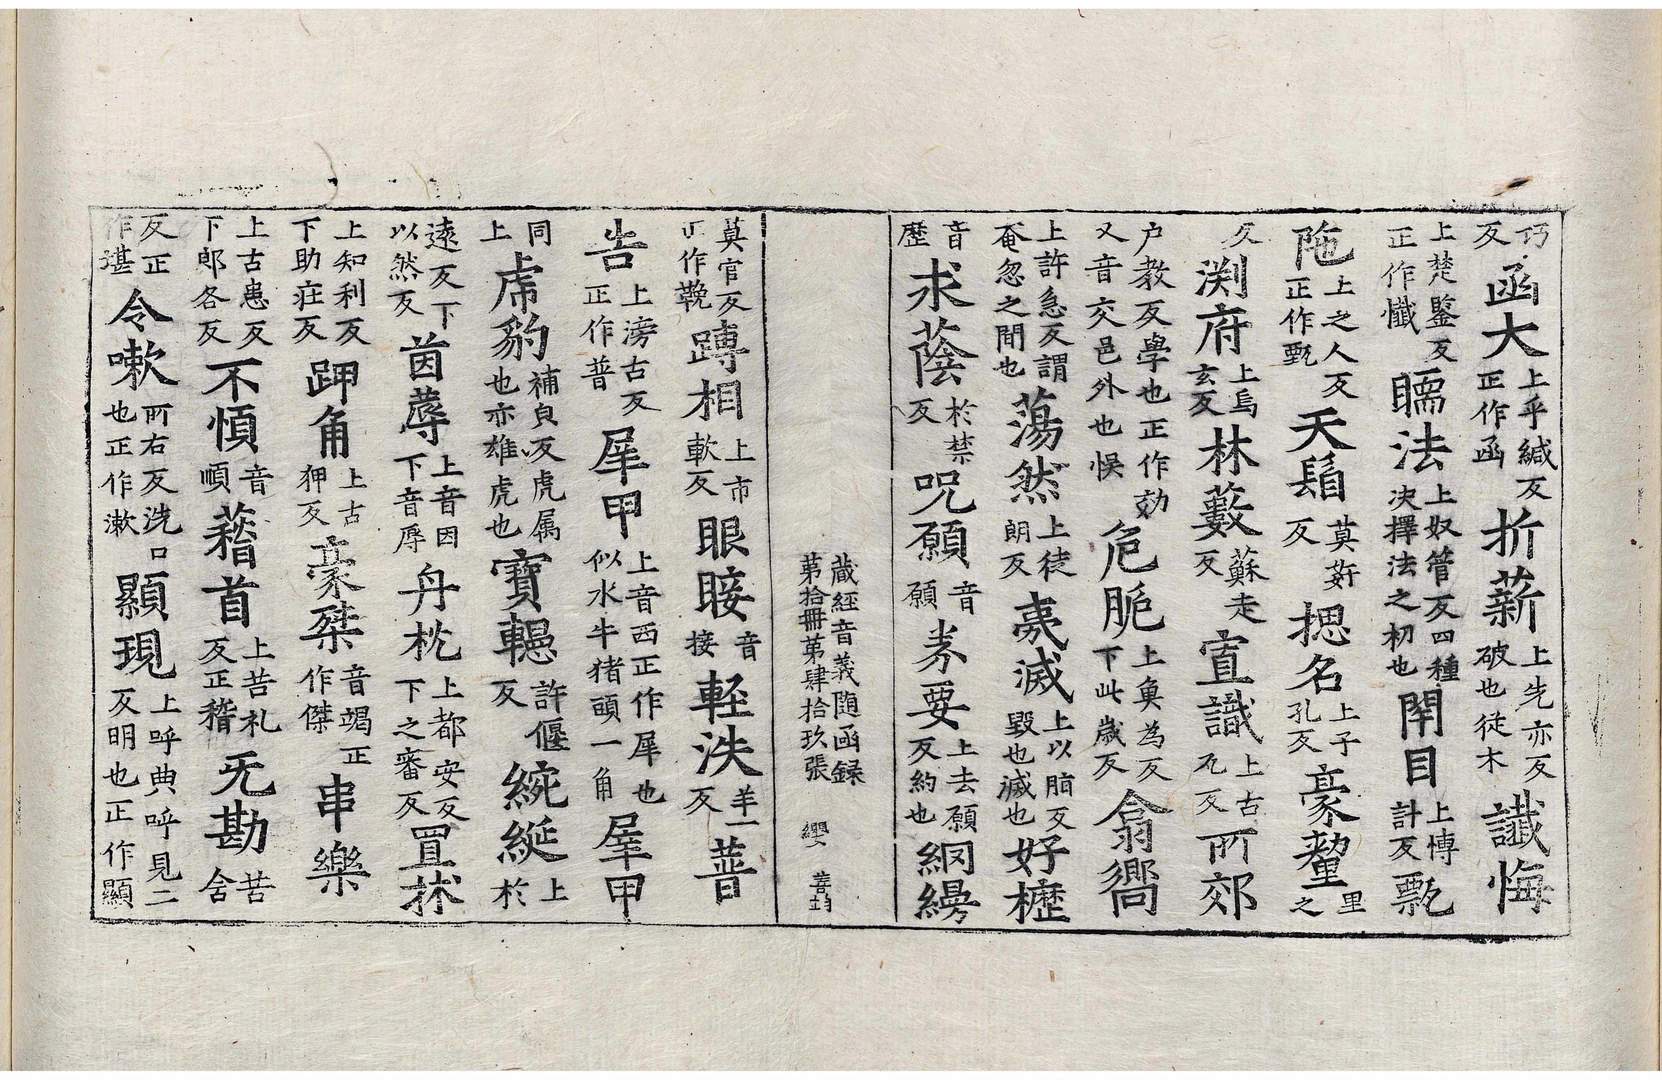 巧反函大上乎緘反正作函折薪上先亦反破也徒木讖悔
上楚鑒反正作懺䎡法上奴管反四種決擇法之初也閇目上博計反甎
陁上之人反正作甄天鬚莫奸反揌名上子孔反豪釐里之
反渕府上烏玄反林藪蘇走反宣識上古九反所郊
户教反學也正作効又音交邑外也悞危脆上魚為反下此歲反翕嚮
上許急反謂奄忽之間也蕩然上徒朗反毀滅上以脂反毀也滅也好櫪
音歷求蔭於禁反呪願音願券要上去願反約也網縵
藏經音義随函録
第拾冊第肆拾玖張 纓 善封
莫官反正作鞔蹲相上市軟反眼睫音接輕泆羊一反普
告上滂古反正作普犀甲上音西正作犀也似水牛猪頭一角犀甲
同上虎豹補皃反虎属也亦雄虎也寶幰許偃反綩綖上於
遠反下以然反茵蓐上音因下音辱丹枕上都安反下之審反罝拭
上知利反下助庄反胛角上古狎反豪桀音竭正作傑串樂
上古患反下郎各反不慎音順稽首上苦礼反正稽旡勘苦含
反正作堪令嗽所右反洗口也正作漱顯現上呼典呼見二反明也正作顯